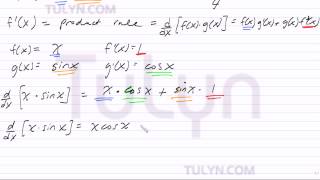 4
f'(x) = product rule = d/dx [f(x)·g(x)] = f(x)g'(x) + g(x)f'(x)
f(x) = x f'(x) = 1
g(x) = sinx g'(x) = cosx
d/dx [x · sinx] = x · cosx + sinx · 1
d/dx [x·sinx] = x cosx
TULYN.COM
Tulyn
TULYN.COM